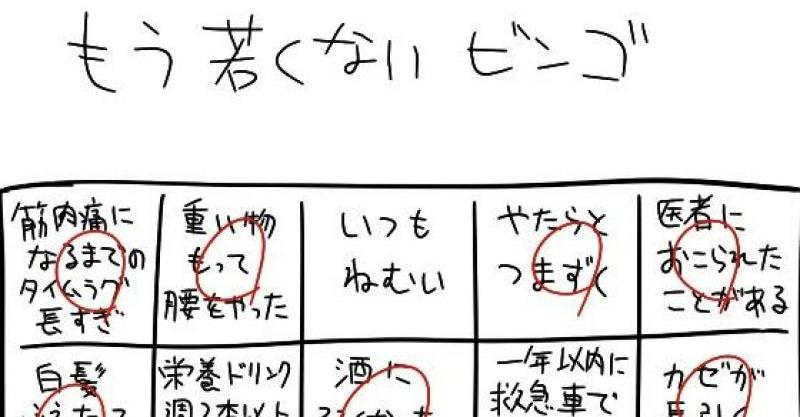 もう若くない ビンゴ
筋肉痛に
なるまでの
タイムラグ
長すぎ
重い物
もって
腰をやった
いつも
ねむい
やたらと
つまずく
医者に
おこられた
ことがある
白髪
栄養ドリンク
酒に
一年以内に
救急車で
カゼが